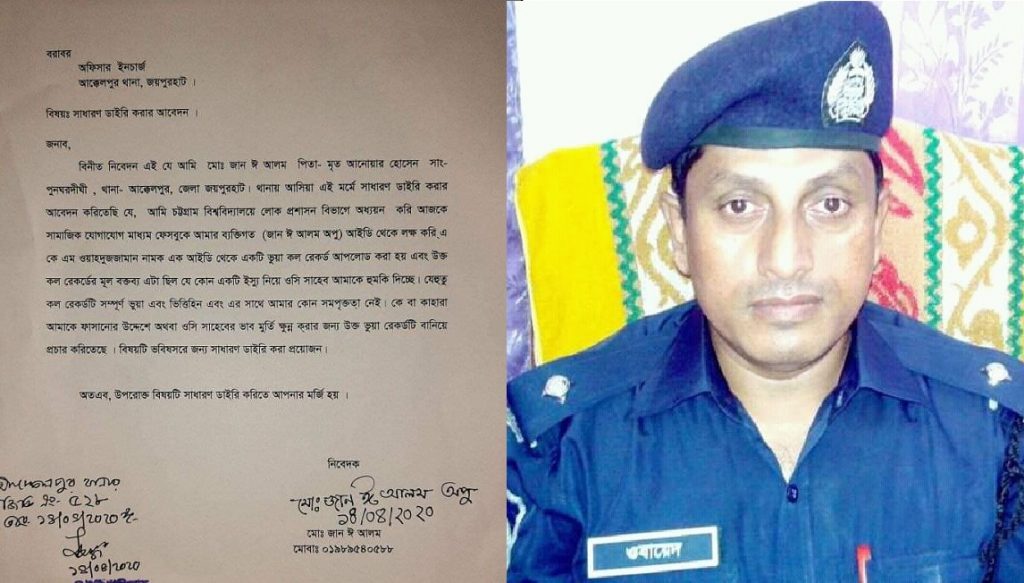 বরাবর
অফিসার ইনচার্জ
আক্কেলপুর থানা, জয়পুরহাট ।
বিষয়ঃ সাধারণ ডাইরি করার আবেদন ।
জনাব,
বিনীত নিবেদন এই যে আমি মোঃ জান ঈ আলম পিতা- মৃত আনোয়ার হোসেন সাং-
পুনঘরদীঘী , থানা- আক্কেলপুর, জেলা জয়পুরহাট। থানায় আসিয়া এই মর্মে সাধারণ ডাইরি করার
আবেদন করিতেছি যে, আমি চট্টগ্রাম বিশ্ববিদ্যালয়ে লোক প্রশাসন বিভাগে অধ্যয়ন করি আজকে
সামাজিক যোগাযোগ মাধ্যম ফেসবুকে আমার ব্যক্তিগত (জান ঈ আলম অপু) আইডি থেকে লক্ষ করি,এ
কে এম ওয়াহদুজজামান নামক এক আইডি থেকে একটি ভুয়া কল রেকর্ড আপলোড করা হয় এবং উক্ত
কল রেকর্ডের মূল বক্তব্য এটা ছিল যে কোন একটি ইস্যু নিয়ে ওসি সাহেব আমাকে হুমকি দিচ্ছে। যেহুতু
কল রেকর্ডটি সম্পূর্ণ ভুয়া এবং ভিত্তিহিন এবং এর সাথে আমার কোন সমপৃক্ততা নেই। কে বা কাহারা
আমাকে ফাসানোর উদ্দেশে অথবা ওসি সাহেবের ভাব মুর্তি ক্ষুন্ন করার জন্য উক্ত ভুয়া রেকর্ডটি বানিয়ে
প্রচার করিতেছে । বিষয়টি ভবিষসরে জন্য সাধারণ ডাইরি করা প্রয়োজন।
অতএব, উপরোক্ত বিষয়টি সাধারণ ডাইরি করিতে আপনার মর্জি হয় ।
নিবেদক
মোঃ জান ঈ আলম অপু
১৪/০৪/২০২০
মোঃ জান ঈ আলম
মোবাঃ ০১৯৮৯৫৪০৫৮৮
জিডি নং- ৫২৮
তাং ১৪/০৪/২০২০ ইং
১৪/০৪/২০২০
ওবায়েদ